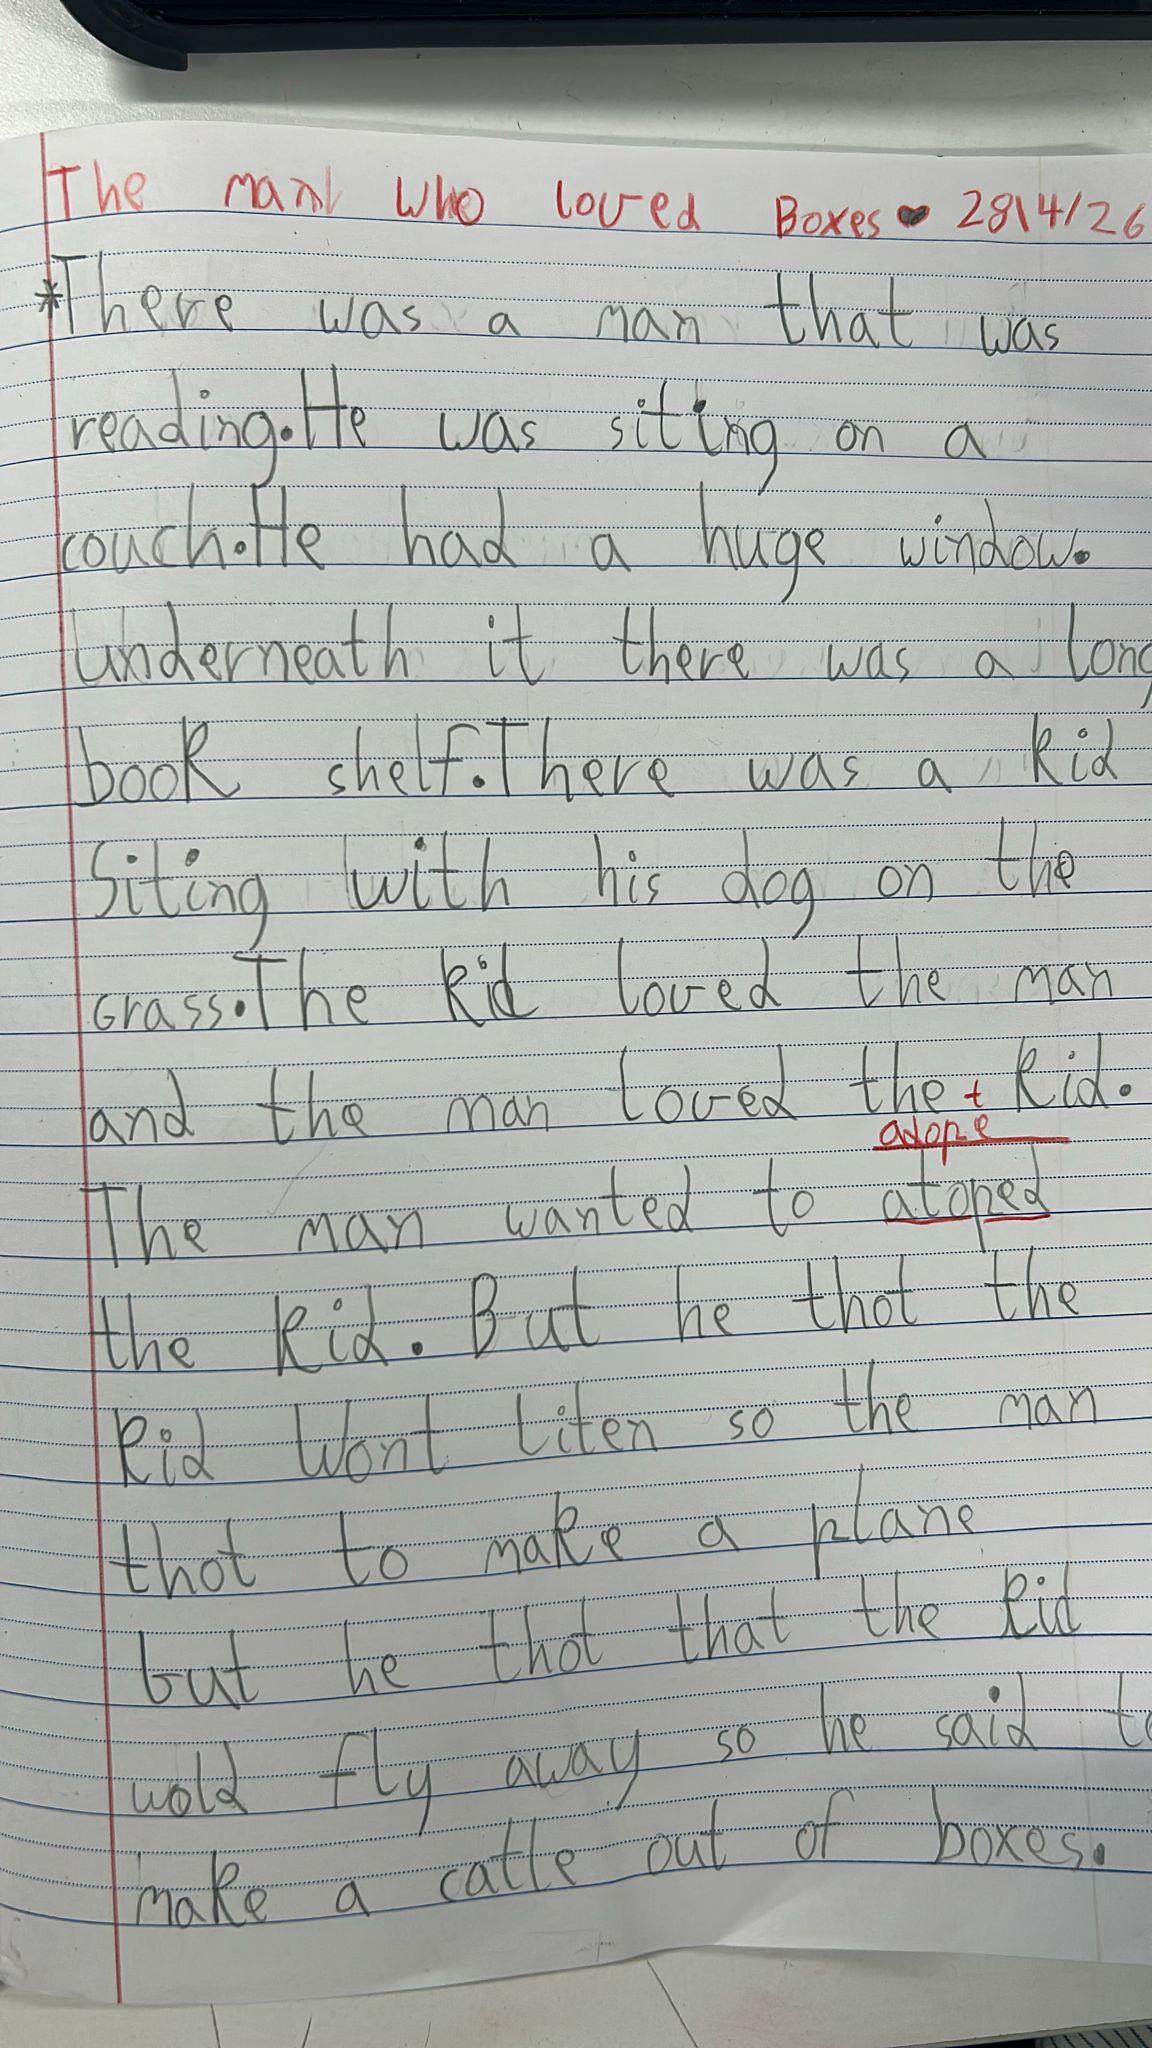 The man who loved Boxes 28\4/26
*There was a man that was
reading.He was siting on a
couch.He had a huge window.
underneath it there was a long
book shelf.There was a kid
Siting with his dog on the
Grass.The kid loved the man
and the man loved the kid.
adopet
The man wanted to atoped
the kid. But he thot the
kid Wont liten so the man
thot to make a plane
but he thot that the kid
wold fly away so he said to
make a catle out of boxes.